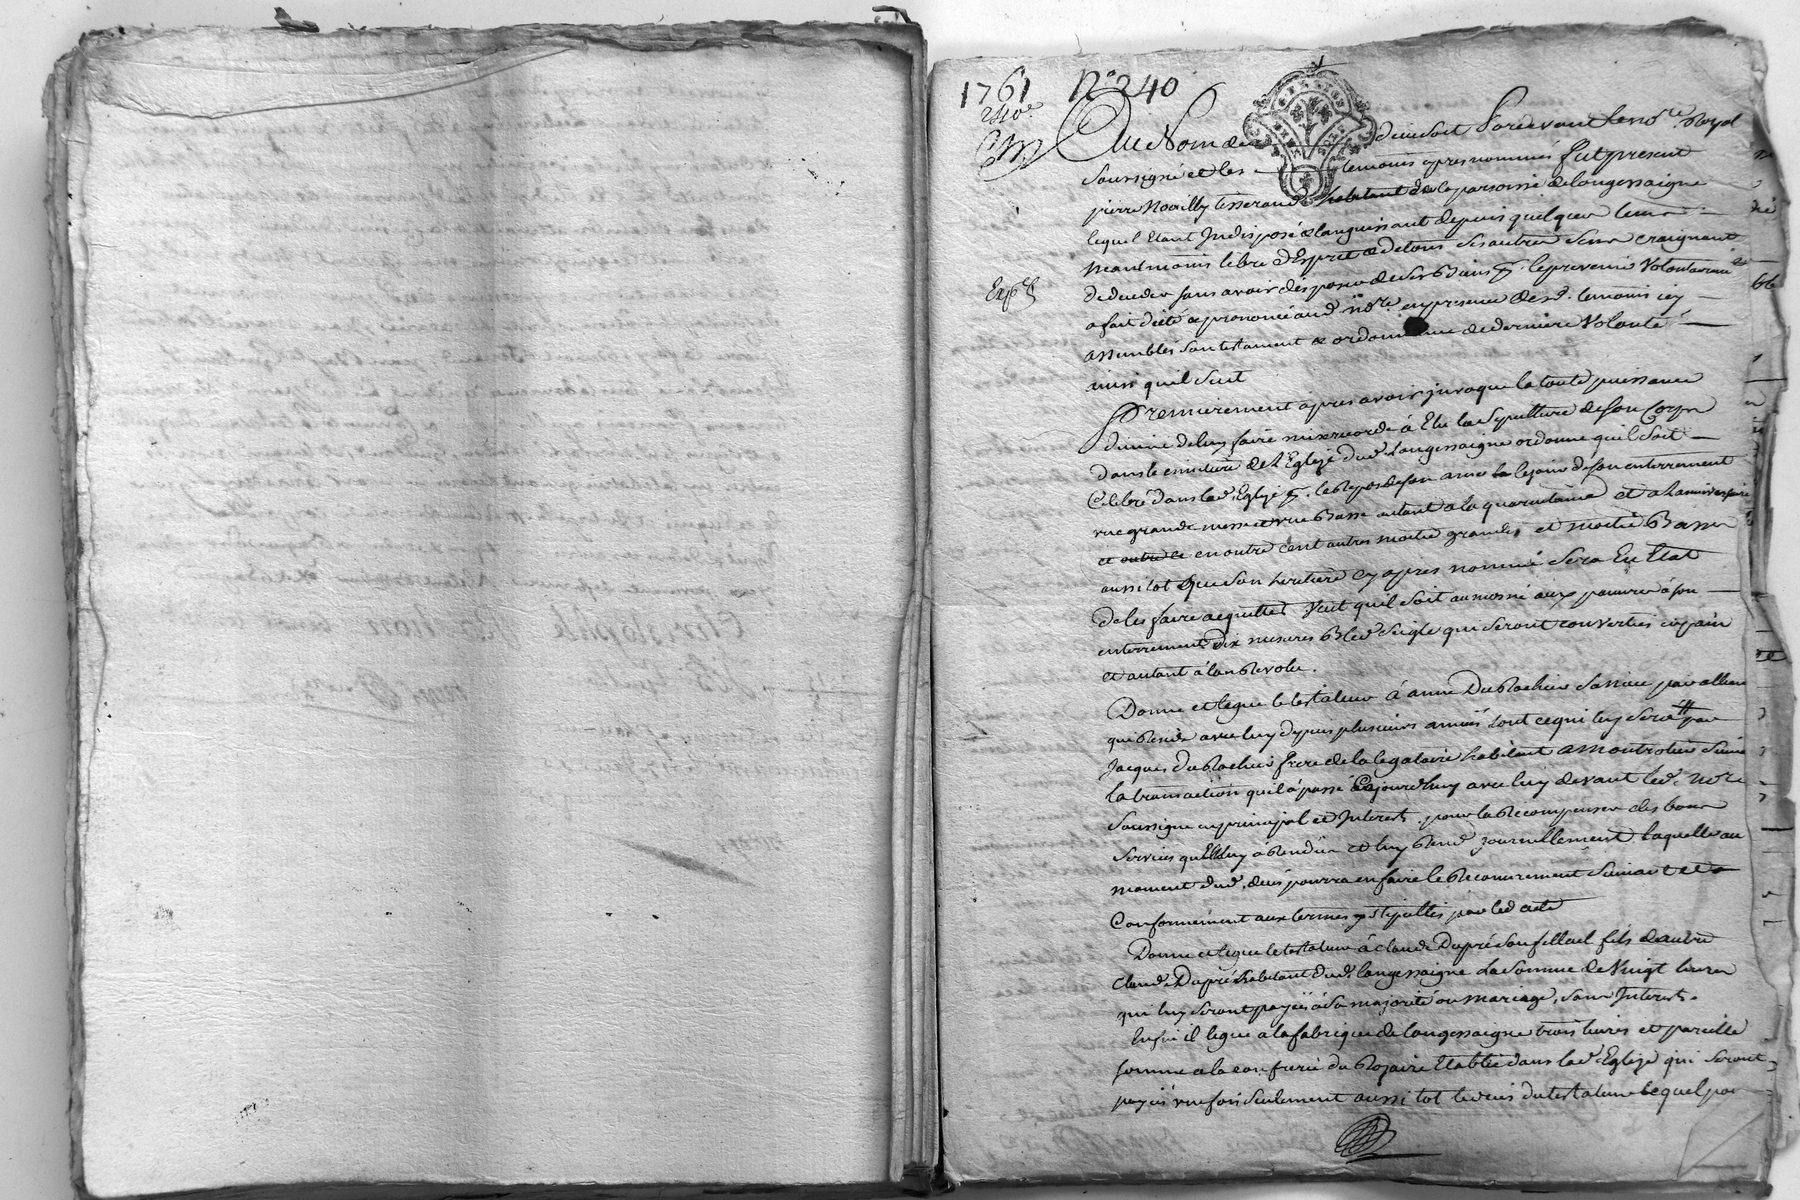 1761 N° 240
Au Nom de dieu soit Pardevant le no.re Royal
soussigné et les temoins apres nommés fut present
pierre Noailly tisserand habitant de la paroisse de longessaigne
lequel Etant Indisposé & languissant depuis quelques tems
neantmoins libre d'Esprit & de tous ses autres sens craignant
de deceder sans avoir disposer de ses Biens p. le prevenir Volontairem.t
a fait dicté & prononcé aud. no.re en presence desd. temoins icy
assemblés son testament & ordonnance de derniere Volonté
ainsi quil suit
Premierement apres avoir jnvoque la toute puissance
divine de luy faire misericorde à Elu la Sepulture de son Corps
dans le cimetiere de l'Eglize dud. Longessaigne ordonne quil soit
Celebré dans lad. Eglize p. le Repos de son ame le jour de son enterrement
vne grande messe et vne Basse autant a la quarantaine et a lanniversaire
et outre ce en outre cent autres moitié grandes et moitié Basses
aussi tot que son heritiere cy apres nommée sera En Etat
de les faire acquitter Veut quil soit aumoné aux pauvres à son
enterrement dix mesures Bled Seigle qui seront converties en pain
et autant à lan Revolu.
Donne et legue le testateur à anne Du Rochier sa niece par alliance
qui Reside avec luy depuis plusieurs années tout ce qui luy sera par
Jacques du Rochier frere de la legataire habitant a montrotier suivant
la transaction quil à passé cejourdhuy avec luy devant led. No.re
soussigne en principal et Interest. pour la Recompenser des bons
services quElle luy à Rendus et luy Rend journellement laquelle au
moment dud. deces pourra en faire le Recouvrement suivant et
Conformement aux termes y stipullés par led acte
Donne et legue le testateur à Claude Dupré son filleul fils d'autre
Claude Dupré habitant dud. longessaigne La Somme de Vingt livres
qui luy seront payés à sa majorité ou mariage, sans Interest.
Enfin il legue a la fabrique de longessaigne trois livres et pareille
somme a la confrerie du Rozaire Etablie dans lad. Eglize qui seront
payés vne fois seulement aussi tot le deces du testateur lequel pour